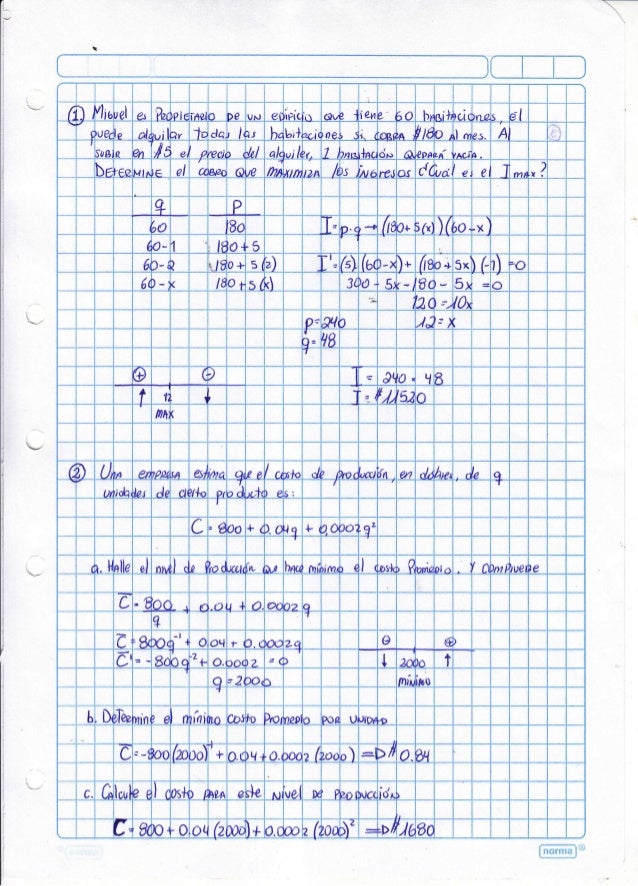 1) Miguel es PROPIETARIO DE UN EDIFICIO QUE tiene 60 habitaciones, él
puede alquilar todas las habitaciones si COBRA $180 Al mes. Al
SUBIR en $5 el precio del alquiler, 1 habitación QUEDARÁ VACÍA.
DETERMINE el COBRO QUE MAXIMIZA los INGRESOS ¿Cuál es el I MAX?
q P
60 180 I = p.q → (180+5(x))(60-x)
60-1 180+5
60-2 180+5(2) I' = (5)(60-x) + (180+5x)(-1) = 0
60-x 180+5(x) 300 - 5x - 180 - 5x = 0
= 120 = 10x
p=240 12 = x
q=48
⊕ ⊖ I = 240 × 48
↑ 12 ↓ I = $11520
MAX
2) Una EMPRESA estima que el costo de producción, en dólares, de q
unidades de cierto producto es:
C = 800 + 0.04q + 0,0002q²
a. Halle el nivel de Producción que hace mínimo el costo Promedio. Y COMPRUEBE
C̄ = 800/q + 0.04 + 0.0002q
C̄ = 800q⁻¹ + 0.04 + 0.0002q ⊖ ⊕
C̄' = -800q⁻² + 0.0002 = 0 ↓ 2000 ↑
q = 2000 mínimo
b. Determine el mínimo costo Promedio POR UNIDAD
C̄ = -800(2000)⁻¹ + 0.04 + 0.0002 (2000) ⇒ $0.84
c. Calcule el costo PARA este Nivel DE PRODUCCIÓN
C = 800 + 0,04 (2000) + 0.0002 (2000)² ⇒ $1680
norma®